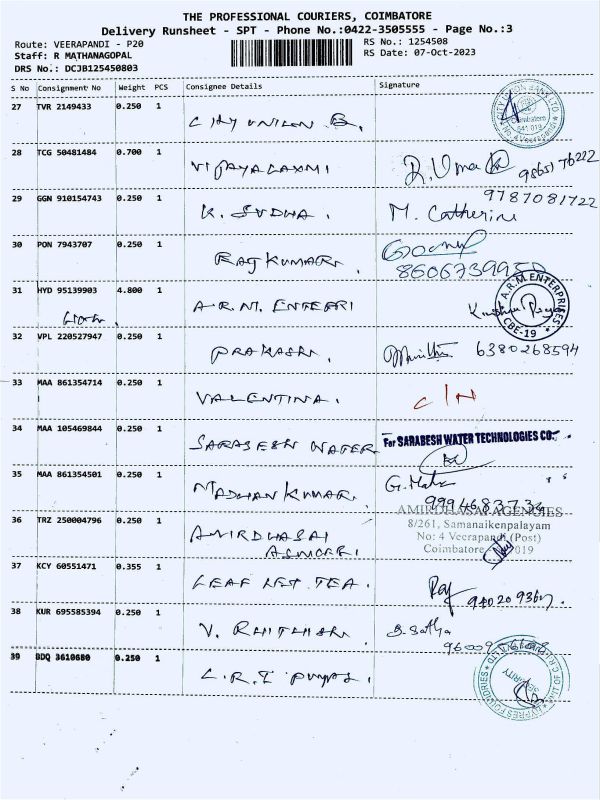 THE PROFESSIONAL COURIERS, COIMBATORE
Delivery Runsheet - SPT - Phone No.:0422-3505555 - Page No.:3
Route: VEERAPANDI - P20
RS No.: 1254508
Staff: R MATHANAGOPAL
RS Date: 07-Oct-2023
DRS No.: DCJB125450803
S No Consignment No Weight PCS Consignee Details Signature
27 TVR 2149433 0.250 1
CITY UNION B.
No. 4 Veerapandi
28 TCG 50481484 0.700 1
VIJAYALAXMI
R. Uma
29 GGN 910154743 0.250 1
9787081722
K. SUDHA. M. Catherine
30 PON 7943707 0.250 1
RAJ KUMAR.
31 HYD 95139903 4.800 1
A.R.M. ENTERPRISES CBE-19
A.R.M. ENTERPRI
32 VPL 220527947 0.250 1
PRAKASH. 6380268594
33 MAA 861354714 0.250 1
VALENTINA. C/N
34 MAA 105469844 0.250 1
SARABESH WATER
For SARABESH WATER TECHNOLOGIES CO.
35 MAA 861354501 0.250 1
MADHAN KUMAR.
9994683734
36 TRZ 250004796 0.250 1
AMIRDHASAI AGENCIES
8/261, Samanaikenpalayam
No: 4 Veerapandi (Post)
Coimbatore 019
AMIRDHASAI
AGENCERI.
37 KCY 60551471 0.355 1
LEAF LET TEA. Raj
38 KUR 695585394 0.250 1
V. RHITHSH B. Satha
39 BDQ 3610680 0.250 1
L.R.T PUMPS.
SECURITY